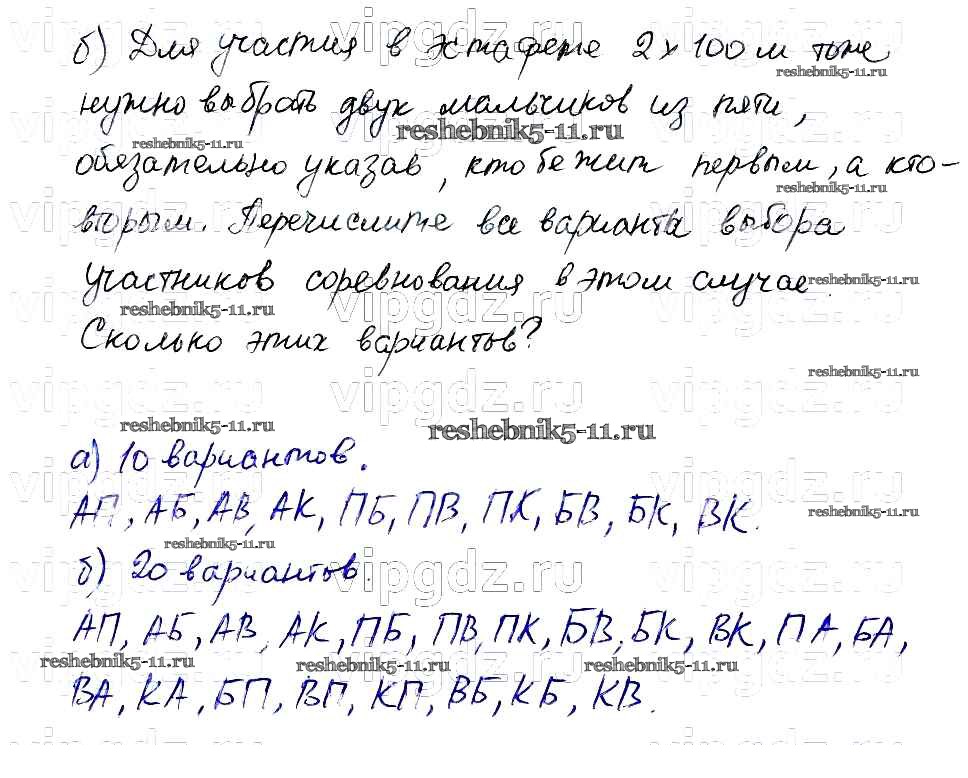 б) Для участия в эстафете 2×100 м тоже
нужно выбрать двух мальчиков из пяти,
обязательно указав, кто бежит первым, а кто-
вторым. Перечислите все варианта выбора
участников соревнования в этом случае.
Сколько этих вариантов?
а) 10 вариантов.
АП, АБ, АВ, АК, ПБ, ПВ, ПК, БВ, БК, ВК.
б) 20 вариантов.
АП, АБ, АВ, АК, ПБ, ПВ, ПК, БВ, БК, ВК, ПА, БА,
ВА, КА, БП, ВП, КП, ВБ, КБ, КВ.
vipgdz.ru
reshebnik5-11.ru